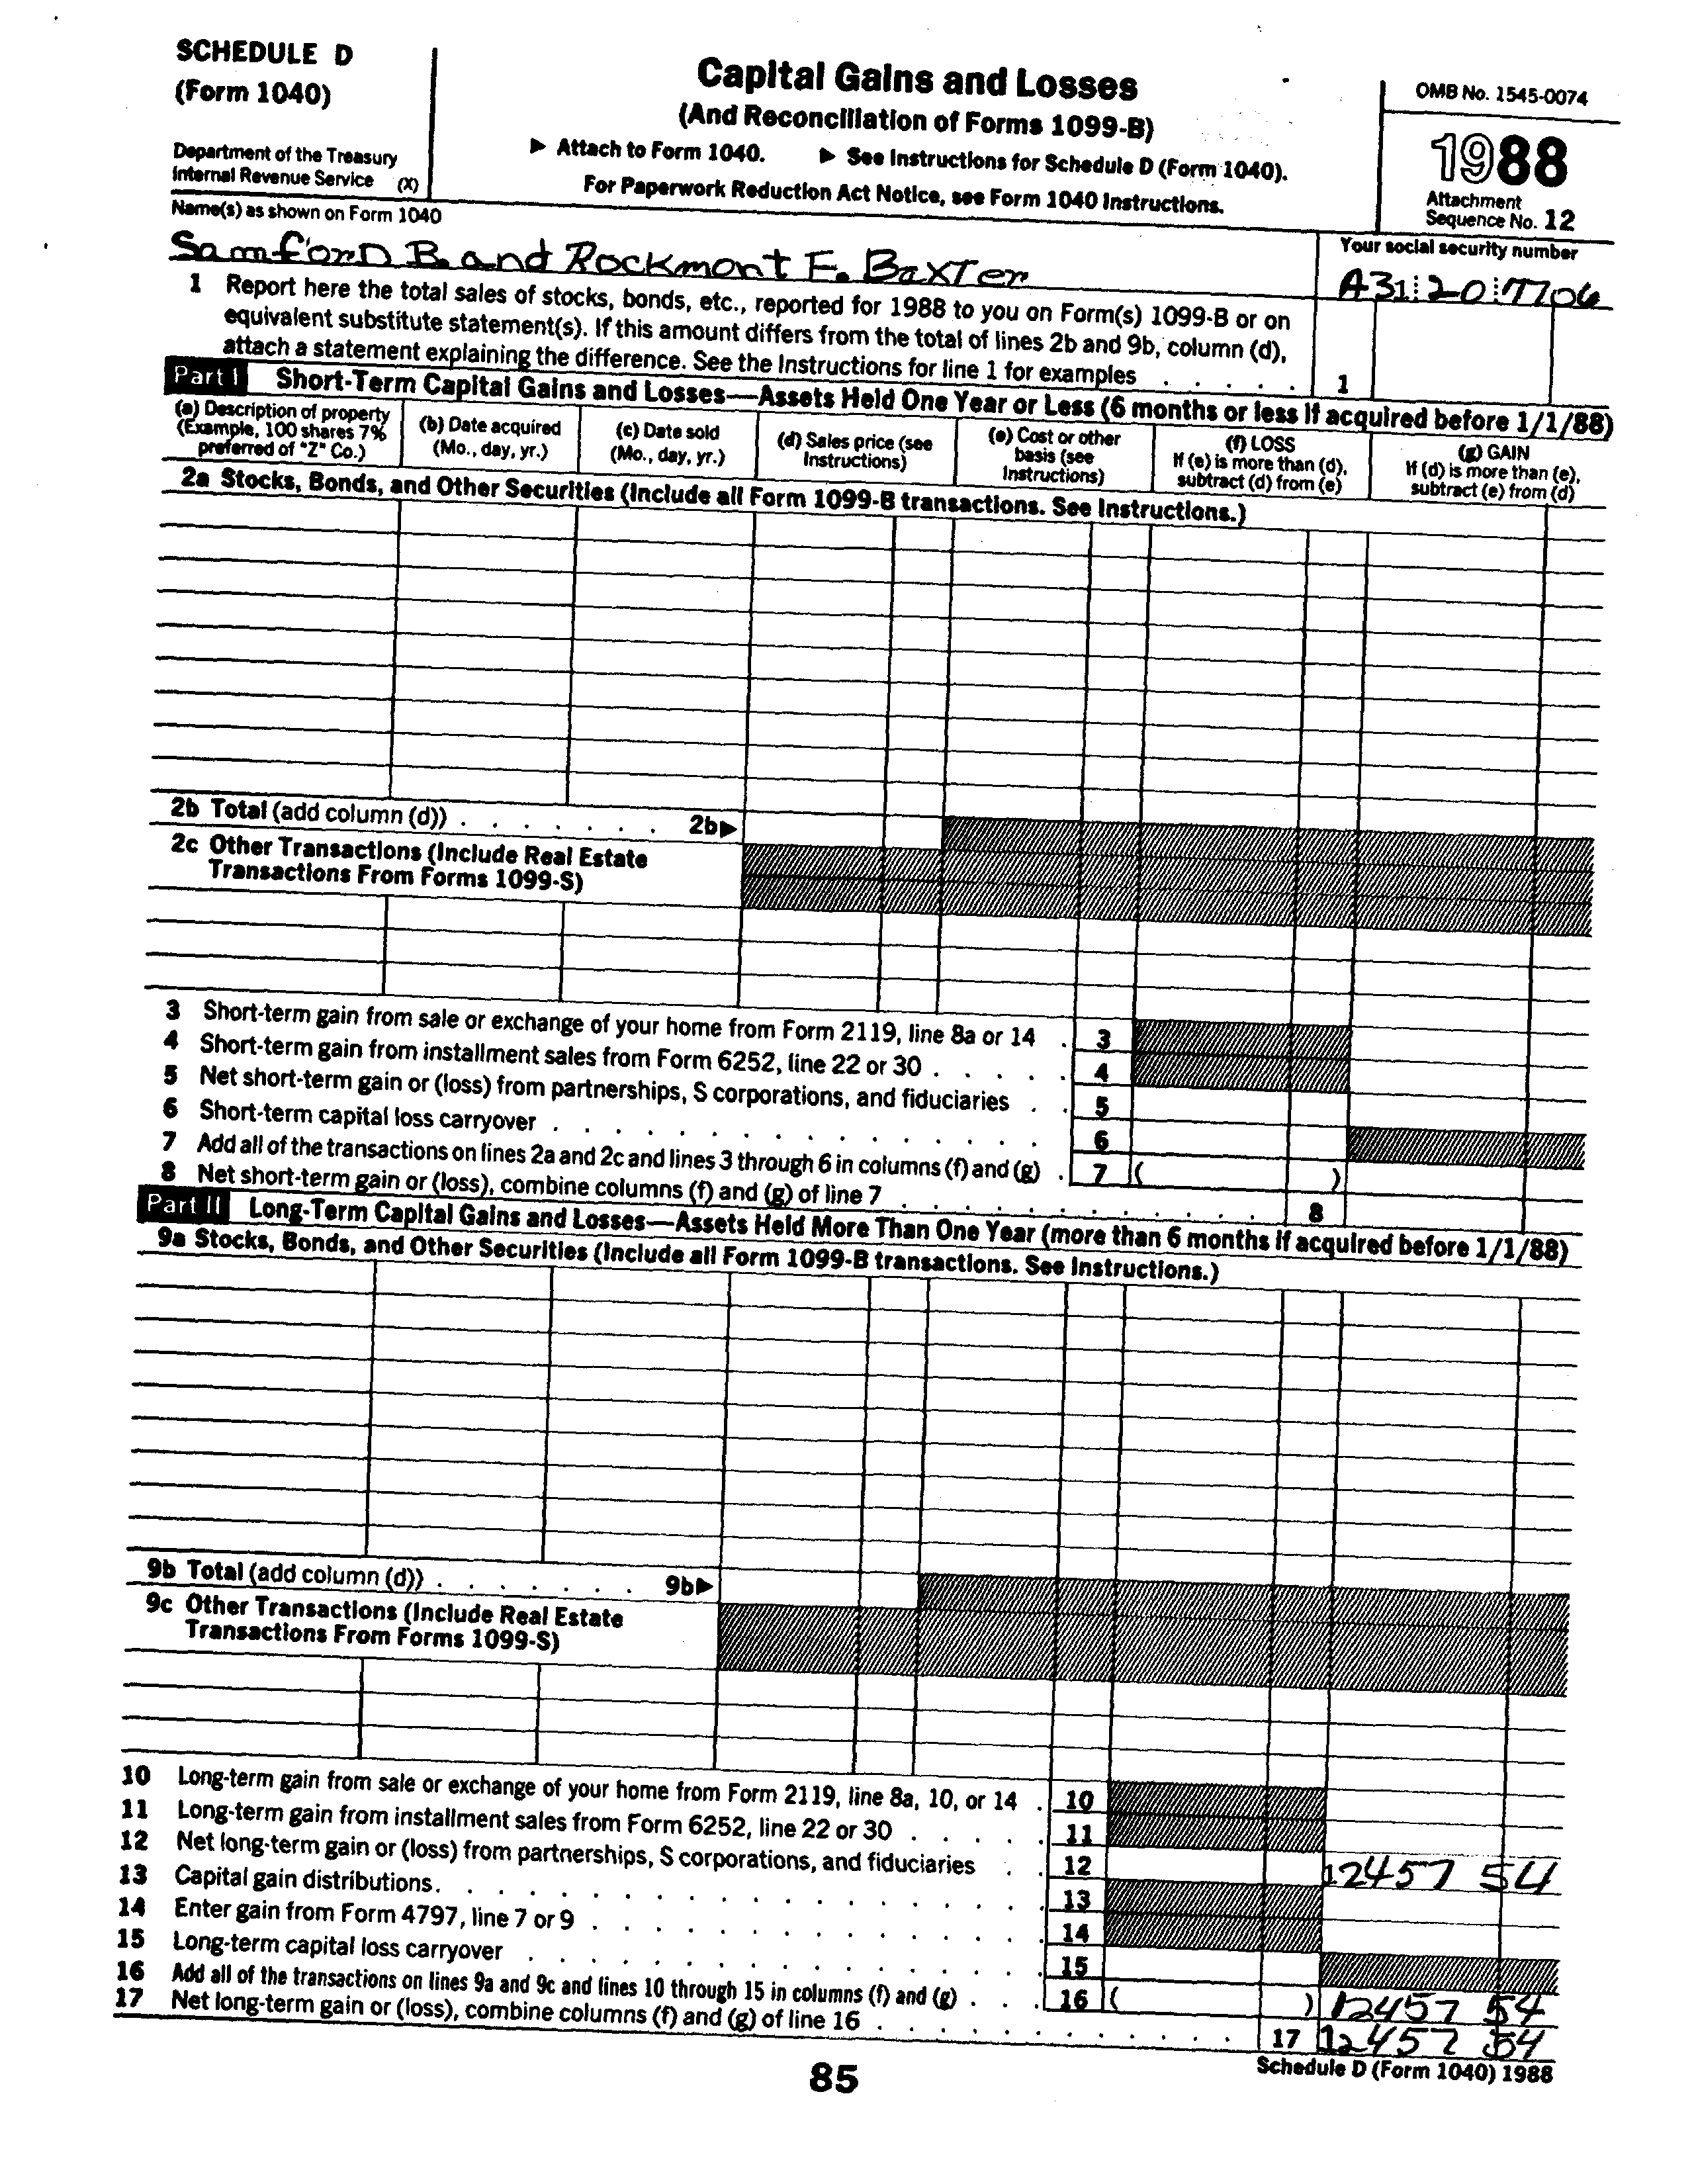 SCHEDULE D
(Form 1040)
Department of the Treasury
Internal Revenue Service (X)
Capital Gains and Losses
(And Reconciliation of Forms 1099-B)
▶ Attach to Form 1040. ▶ See Instructions for Schedule D (Form 1040).
For Paperwork Reduction Act Notice, see Form 1040 Instructions.
OMB No. 1545-0074
1988
Attachment
Sequence No. 12
Name(s) as shown on Form 1040
Your social security number
Samford B. and Rockmont F. Baxter
A31 20 7706
1 Report here the total sales of stocks, bonds, etc., reported for 1988 to you on Form(s) 1099-B or on
equivalent substitute statement(s). If this amount differs from the total of lines 2b and 9b, column (d),
attach a statement explaining the difference. See the Instructions for line 1 for examples . . . . . 1
Part I Short-Term Capital Gains and Losses—Assets Held One Year or Less (6 months or less if acquired before 1/1/88)
(a) Description of property
(Example, 100 shares 7%
preferred of "Z" Co.)
(b) Date acquired
(Mo., day, yr.)
(c) Date sold
(Mo., day, yr.)
(d) Sales price (see
Instructions)
(e) Cost or other
basis (see
Instructions)
(f) LOSS
If (e) is more than (d),
subtract (d) from (e)
(g) GAIN
If (d) is more than (e),
subtract (e) from (d)
2a Stocks, Bonds, and Other Securities (Include all Form 1099-B transactions. See Instructions.)
2b Total (add column (d)) . . . . . . . 2b▶
2c Other Transactions (Include Real Estate
Transactions From Forms 1099-S)
3 Short-term gain from sale or exchange of your home from Form 2119, line 8a or 14 . 3
4 Short-term gain from installment sales from Form 6252, line 22 or 30 . . . . . 4
5 Net short-term gain or (loss) from partnerships, S corporations, and fiduciaries . . 5
6 Short-term capital loss carryover . . . . . . . . . . . . . . . . 6
7 Add all of the transactions on lines 2a and 2c and lines 3 through 6 in columns (f) and (g) . 7 ( )
8 Net short-term gain or (loss), combine columns (f) and (g) of line 7 . . . . . . . . . . . . . 8
Part II Long-Term Capital Gains and Losses—Assets Held More Than One Year (more than 6 months if acquired before 1/1/88)
9a Stocks, Bonds, and Other Securities (Include all Form 1099-B transactions. See Instructions.)
9b Total (add column (d)) . . . . . . . 9b▶
9c Other Transactions (Include Real Estate
Transactions From Forms 1099-S)
10 Long-term gain from sale or exchange of your home from Form 2119, line 8a, 10, or 14 . 10
11 Long-term gain from installment sales from Form 6252, line 22 or 30 . . . . . 11
12 Net long-term gain or (loss) from partnerships, S corporations, and fiduciaries . . 12 12457 54
13 Capital gain distributions. . . . . . . . . . . . . . . . . . . 13
14 Enter gain from Form 4797, line 7 or 9 . . . . . . . . . . . . . . 14
15 Long-term capital loss carryover . . . . . . . . . . . . . . . . 15
16 Add all of the transactions on lines 9a and 9c and lines 10 through 15 in columns (f) and (g) . . . 16 ( ) 12457 54
17 Net long-term gain or (loss), combine columns (f) and (g) of line 16 . . . . . . . . . . . . . 17 12457 54
85
Schedule D (Form 1040) 1988